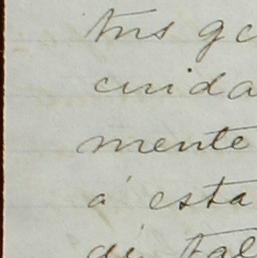 tus ge
cuida
mente
á esta
de tal